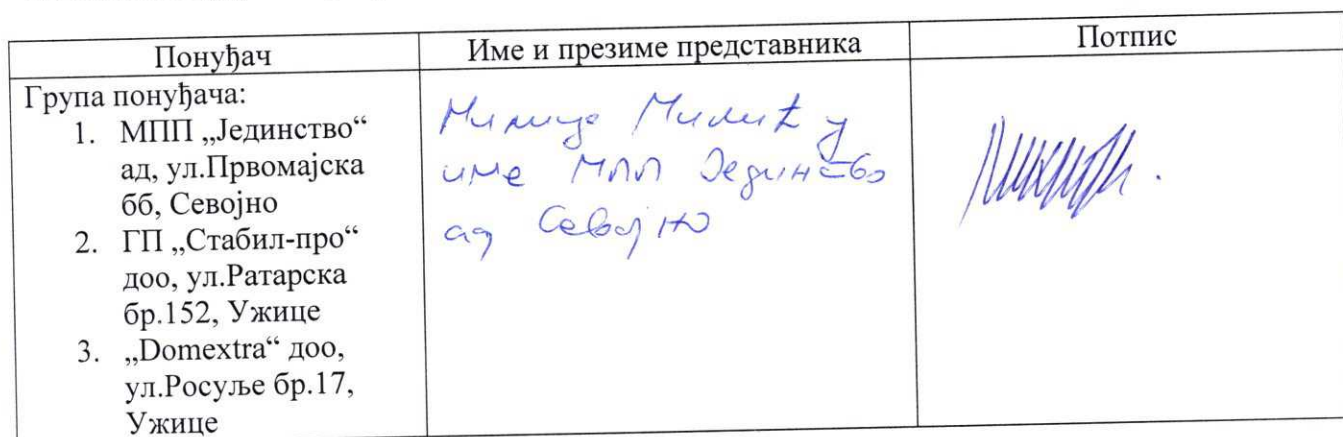 Понуђач
Име и презиме представника
Потпис
Група понуђача:
1. МПП „Јединство“
ад, ул.Првомајска
бб, Севојно
2. ГП „Стабил-про“
доо, ул.Ратарска
бр.152, Ужице
3. „Domextra“ доо,
ул.Росуље бр.17,
Ужице
Милица Милић у
име МПП Јединство
ад Севојно